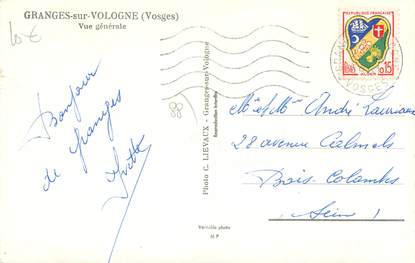 GRANGES-sur-VOLOGNE (Vosges)
Vue générale
10 €
88
Bonjour
de Granges
Photo C. LIEVAUX - Granges-sur-Vologne
Reproduction interdite
Véritable photo
M P
RÉPUBLIQUE FRANÇAISE
0,15
ALGER
VOSGES
Mr et Mme André
28 avenue Calmels
Bois-Colombes
Seine